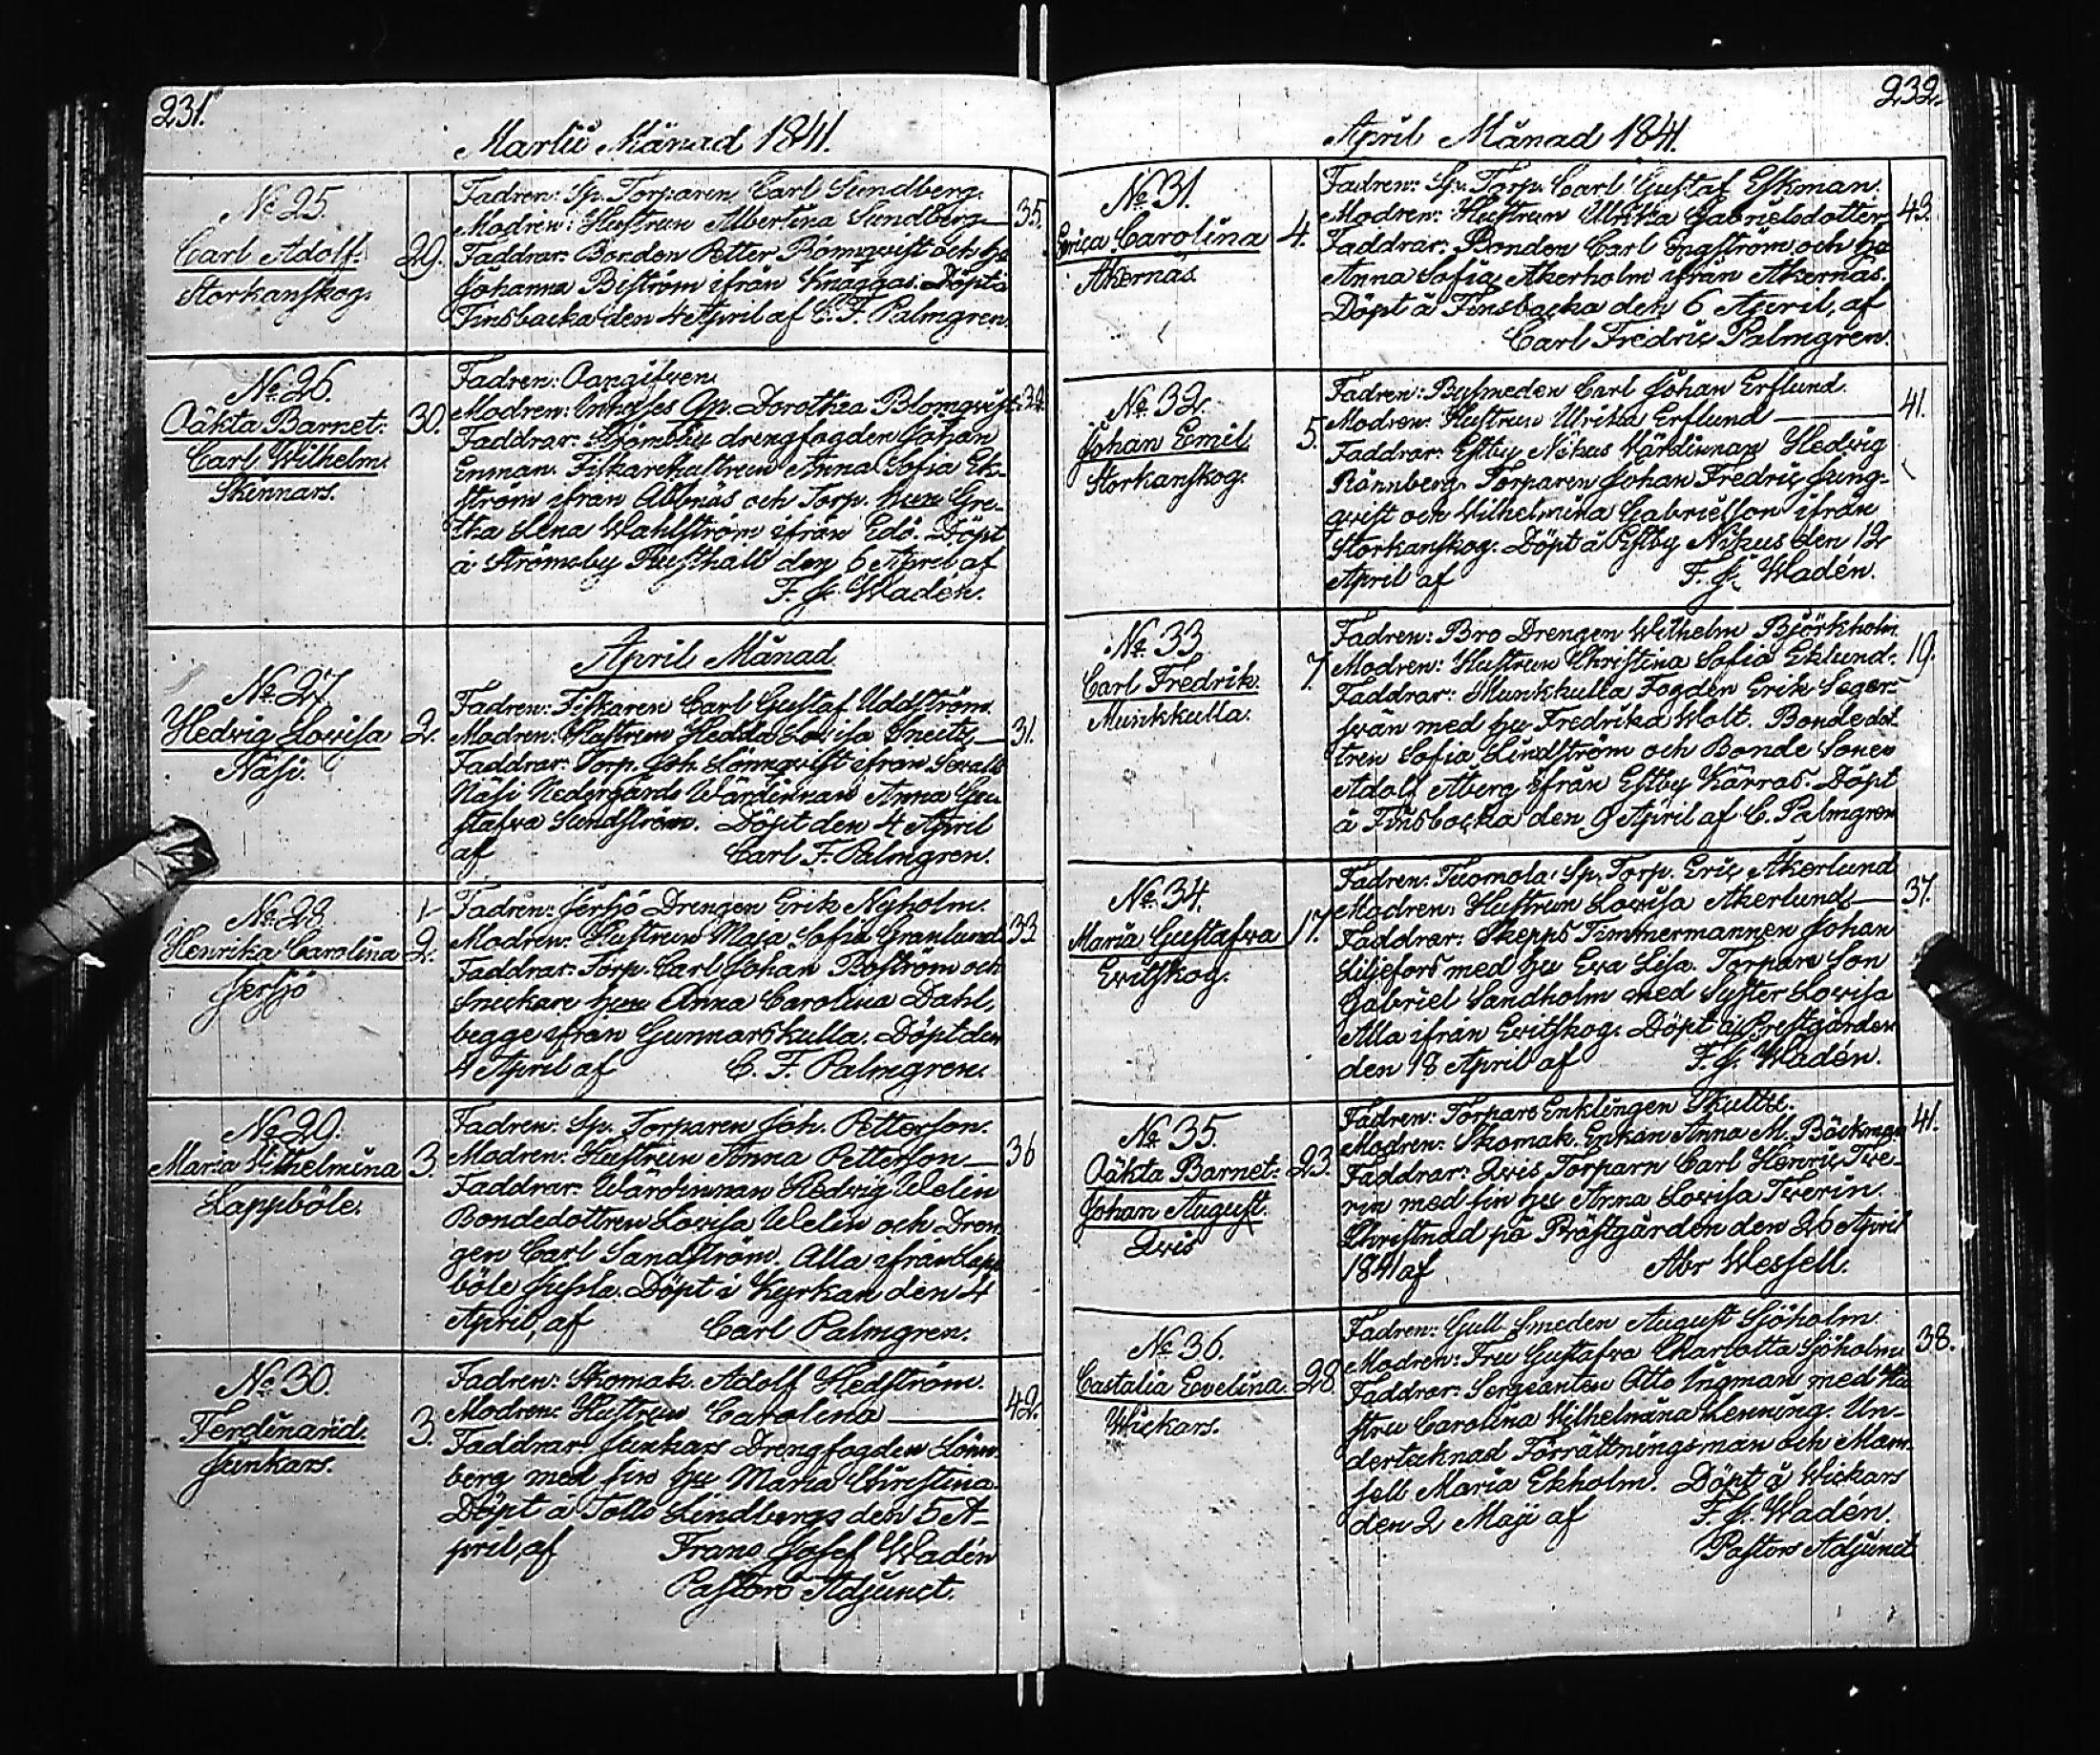 231.
Martii Månad 1841.
No 25.
Carl Adolf.
Storkanskog.
29.
Fadren: Sp. Torparen Carl Sundberg.
Modren: Hustrun Albertina Sundberg — 35.
Faddrar: Bonden Petter Rönnqvist och hu
Johanna Biström ifrån Knaggas. Döpt å
Finsbacka den 4 April af C. F. Palmgren.
No 26.
Oäkta Barnet:
Carl Wilhelm.
Skennars.
30.
Fadren: Oangifven.
Modren: Inhyses Qp. Dorothea Blomqvist. 32.
Faddrar: Strömsby drengfogden Johan
Enman. Fiskarehustrun Anna Sofia Ek-
ström ifrån Abbnäs och Torp. hun Gre-
tha Lena Wahlström ifrån Edö. Döpt
å Strömsby Rusthåll den 6 April af
F. J. Wadén.
April Månad
No 27.
Hedvig Lovisa
Näsi.
2.
Fadren: Fiskaren Carl Gustaf Uddström.
Modren: Hustrun Hedda Lovisa — 31.
Faddrar: Torp. Joh. Lönnqvist ifrån
Näsi Nedergårds Wärdinnan Anna Gu-
stafva Sundström. Döpt den 4 April
af Carl F. Palmgren.
No 28.
Henrika Carolina
Jersö
2.
Fadren: Jersö Drengen Erik Nyholm.
Modren: Hustrun Maja Sofia Granlund 33
Faddrar: Torp. Carl Johan Boström och
Snickare hun Anna Carolina Dahl,
begge ifrån Gunnarskulla. Döpt den
4 April af C. F. Palmgren.
No 29.
Maria Wilhelmina
Lappböle.
3.
Fadren: Sp. Torparen Joh. Petterson.
Modren: Hustrun Anna Petterson — 36
Faddrar: Wärdinnan Hedvig Welin
Bondedottren Lovisa Welin och Dren-
gen Carl Sandström. Alla ifrån Lapp
böle Jussla. Döpt i Kyrkan den 4
April, af Carl Palmgren.
No 30.
Ferdinand.
Junkars.
3.
Fadren: Skomak. Adolf Hedström.
Modren: Hustrun Carolina — 42.
Faddrar: Junkars Drengfogden Lönn-
berg med sin hu Maria Christina.
Döpt å Tolls Lindbergs den 5 A-
pril, af Frans Josef Wadén
Pastors Adjunct.
232.
April Månad 1841.
No 31.
Erica Carolina
Åkernäs.
4.
Fadren: Sp. Torp. Carl Gustaf Eskman.
Modren: Hustrun Ulrika Gabrielsdotter 43.
Faddrar: Bonden Carl Engström och hu
Anna Sofia Åkerholm ifrån Åkernäs.
Döpt å Finsbacka den 6 April, af
Carl Fredric Palmgren.
No 32.
Johan Emil.
Storkanskog.
5.
Fadren: Bysmeden Carl Johan Erflund.
Modren: Hustrun Ulrika Erflund — 41.
Faddrar: Estby Nikus Wärdinnan Hedvig
Rönnberg. Torparen Johan Fredric Jung-
qvist och Wilhelmina Gabrielson ifrån
Storkanskog. Döpt å Estby Nikus den 12
April af F. J. Wadén.
No 33.
Carl Fredrik.
Munkkulla.
7.
Fadren: Bro Drengen Wilhelm Björkholm.
Modren: Hustrun Christina Sofia Eklund. 19.
Faddrar: Munkkulla Fogden Erik Seger-
svän med hu Fredrika Wolt. Bonde dot-
tren Sofia Lindström och Bonde Sonen
Adolf Åberg ifrån Estby Kärras. Döpt
å Finsbacka den 9 April af C. Palmgren
No 34.
Maria Gustafva
Evitskog.
17.
Fadren: Tuomola. Sp. Torp. Eric Åkerlund
Modren: Hustrun Lovisa Åkerlund — 37.
Faddrar: Skepps Timmermannen Johan
Liljefors med hu Eva Lisa. Torpare Son
Gabriel Sandholm med Syster Lovisa
Alla ifrån Evitskog. Döpt å Prestgården
den 18 April af F. J. Wadén.
No 35.
Oäkta Barnet:
Johan August.
Qvis
23.
Fadren: Torpare Enklingen Skultte.
Modren: Skomak. Enkan Anna M. Böckman 41.
Faddrar: Qvis Torparn Carl Henric Twe-
rin med sin hu Anna Lovisa Twerin.
Christnad på Prästgården den 26 April
1841 af Abr Wessell.
No 36.
Castalia Evelina.
Wickars.
28.
Fadren: Gull Smeden August Sjöholm.
Modren: Fru Gustafva Charlotta Sjöholm 38.
Faddrar: Sergeanten Otto Ingman med Hu
stru Carolina Wilhelmina Henning. Un-
dertecknad Förrättningsman och Mam-
sell Maria Ekholm. Döpt å Wickars
den 2 Maji af F. J. Wadén.
Pastors Adjunct